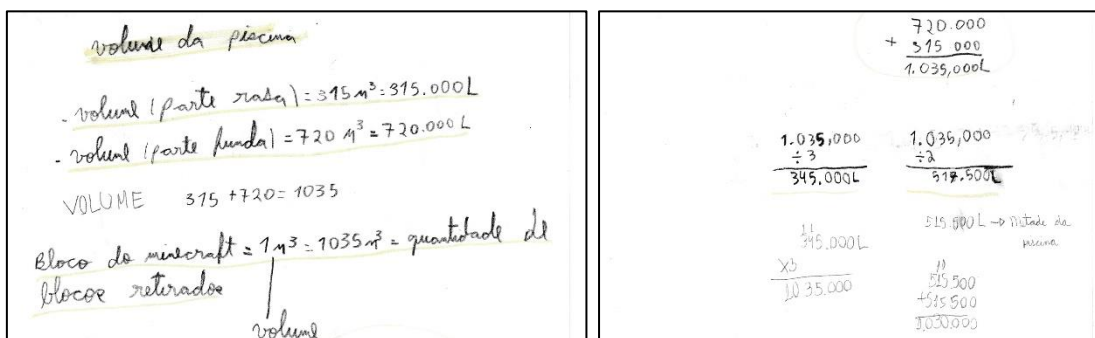 volume da piscina
- volume (parte rasa) = 315 m³ = 315.000L
- volume (parte funda) = 720 m³ = 720.000 L
VOLUME 315 + 720 = 1035
Bloco do minecraft = 1 m³ = 1035 m³ = quantidade de
blocos retirados
volume
720.000
+ 315 000
1.035,000L
1.035,000
÷ 3
345.000L
1.035,000
÷2
517.500L
11
345.000L
X3
1035.000
515.500L → Metade da
piscina
11
515.500
+515.500
1,030.000